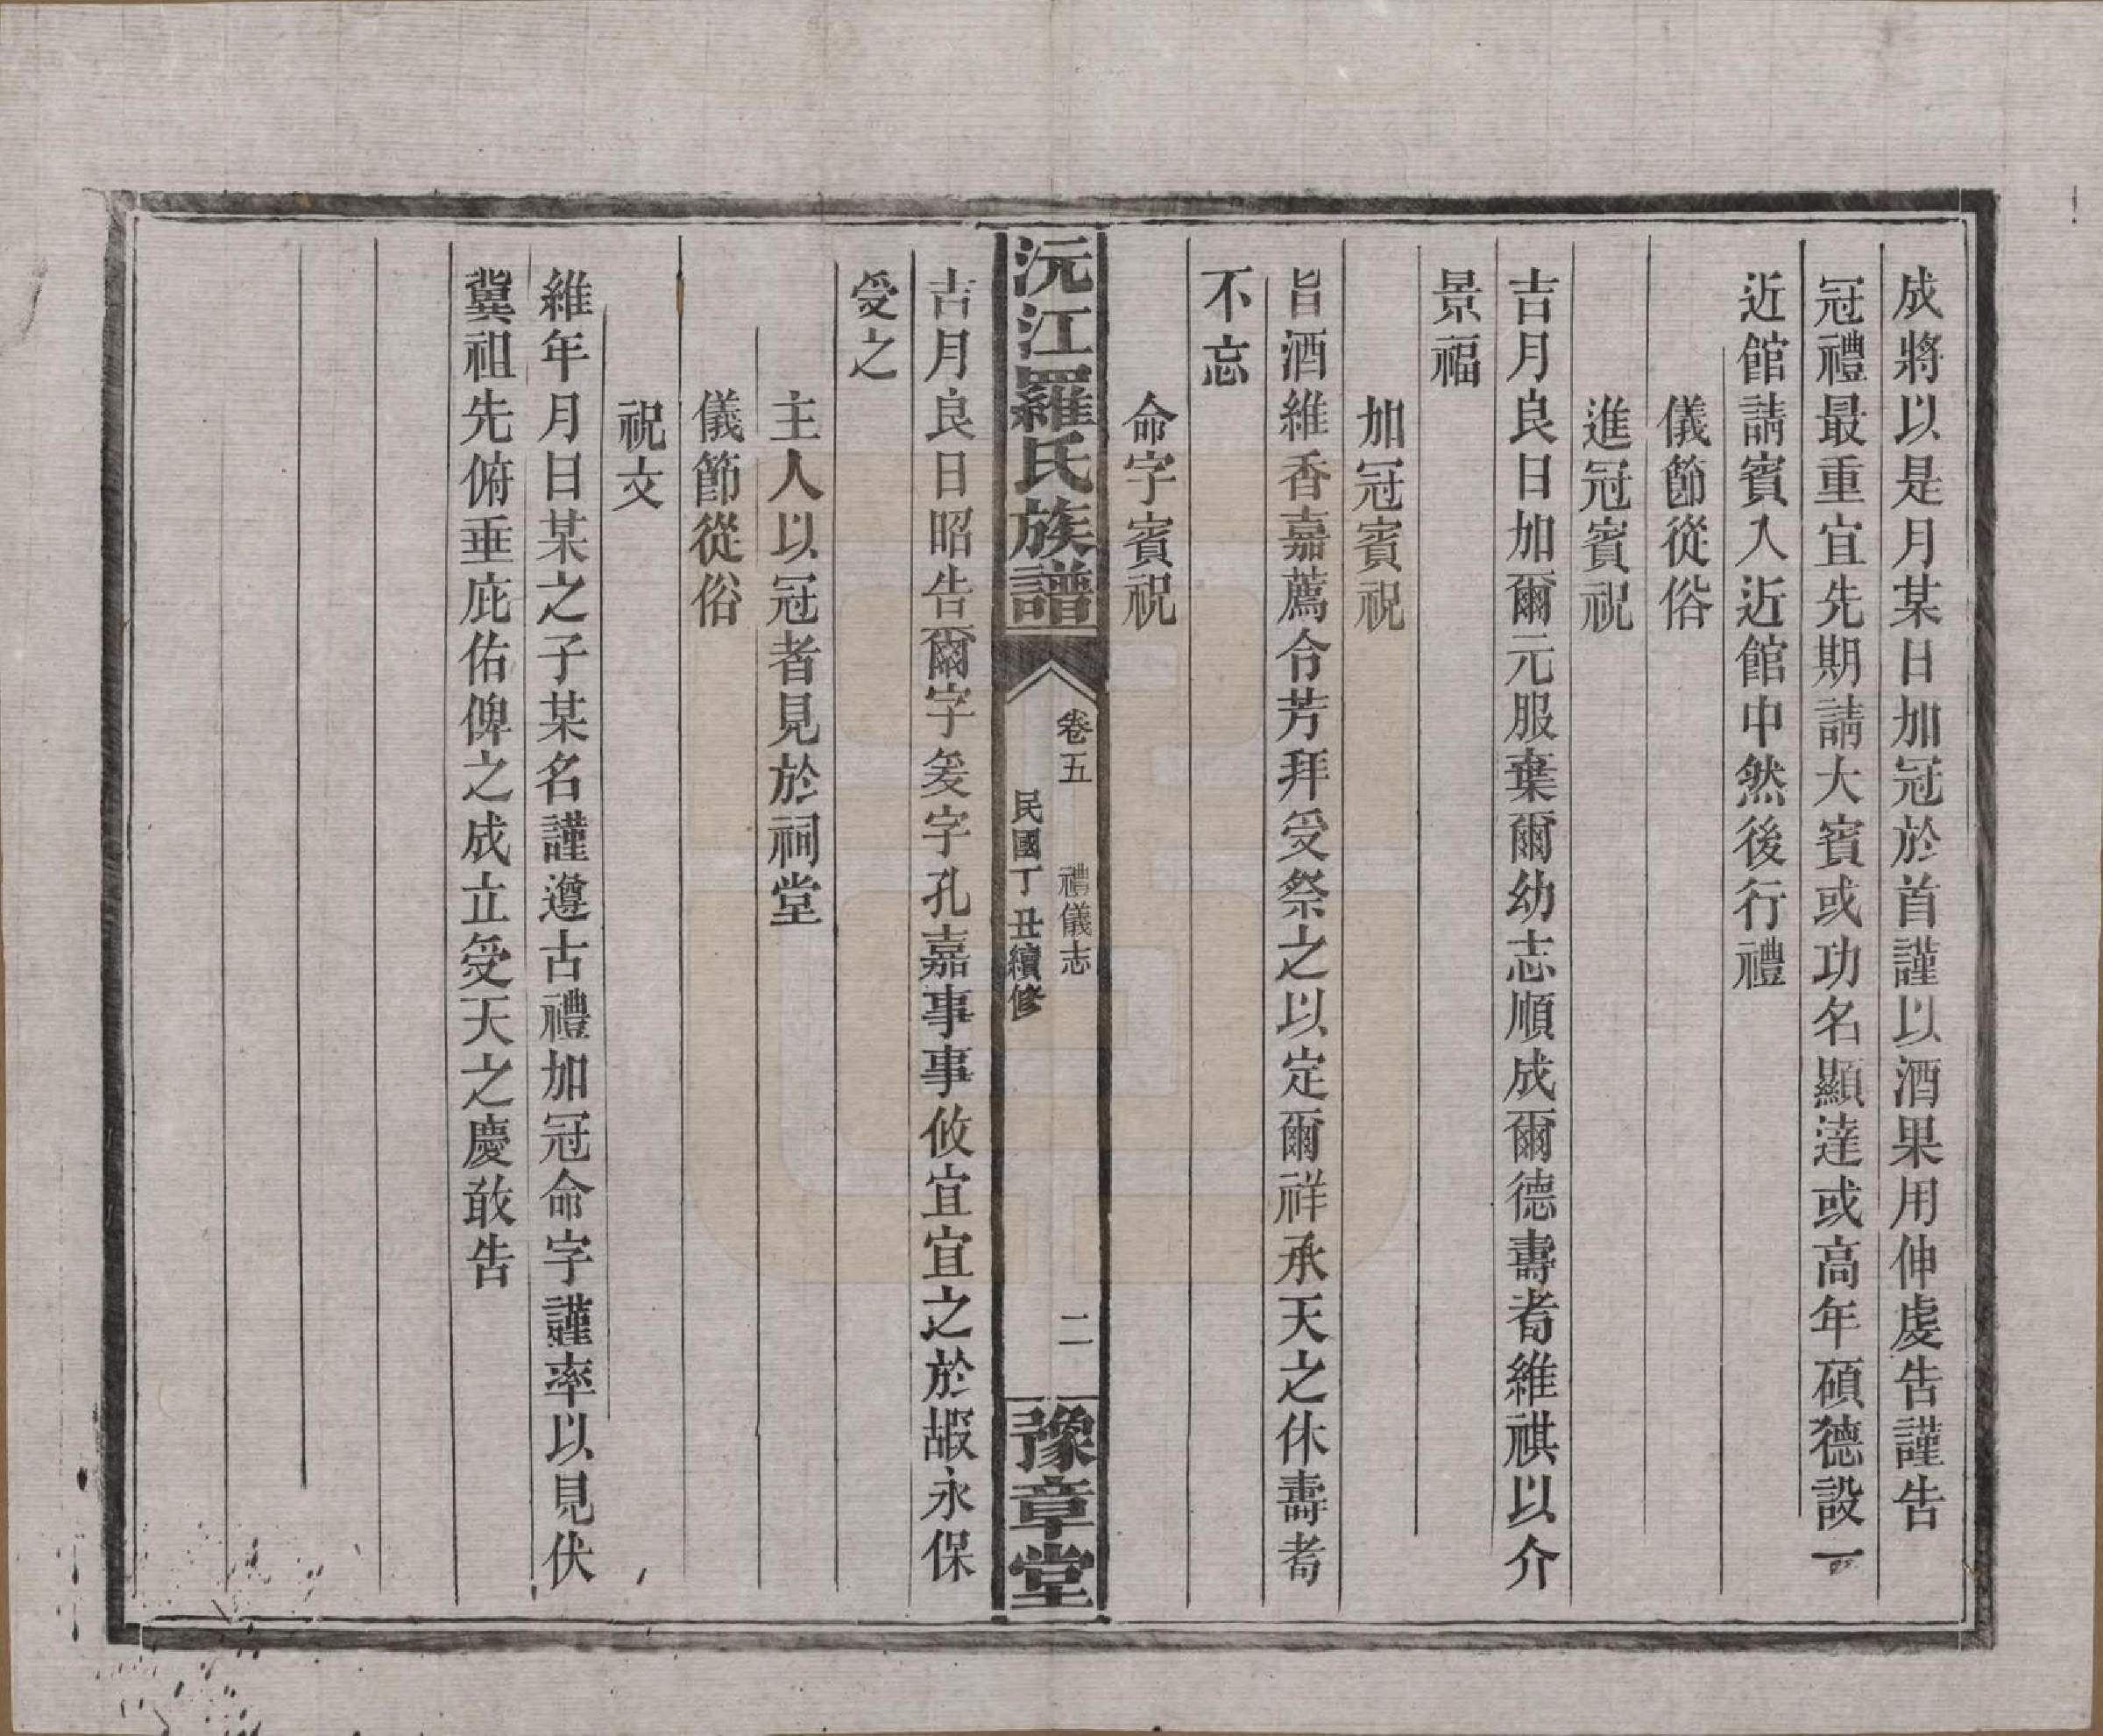 成將以是月某日加冠於首謹以酒果用伸虔告謹告
冠禮最重宜先期請大賓或功名顯達或高年碩德設一
近館請賓入近館中然後行禮
儀節從俗
進冠賓祝
吉月良日加爾元服棄爾幼志順成爾德壽耈維祺以介
景福
加冠賓祝
旨酒維香嘉薦令芳拜受祭之以定爾祥承天之休壽耈
不忘
命字賓祝
沅江羅氏族譜
卷五
禮儀志
民國丁丑續修
二
豫章堂
吉月良日昭告爾字爰字孔嘉事事攸宜宜之於嘏永保
受之
主人以冠者見於祠堂
儀節從俗
祝文
維年月日某之子某名謹遵古禮加冠命字謹率以見伏
冀祖先俯垂庇佑俾之成立受天之慶敢告